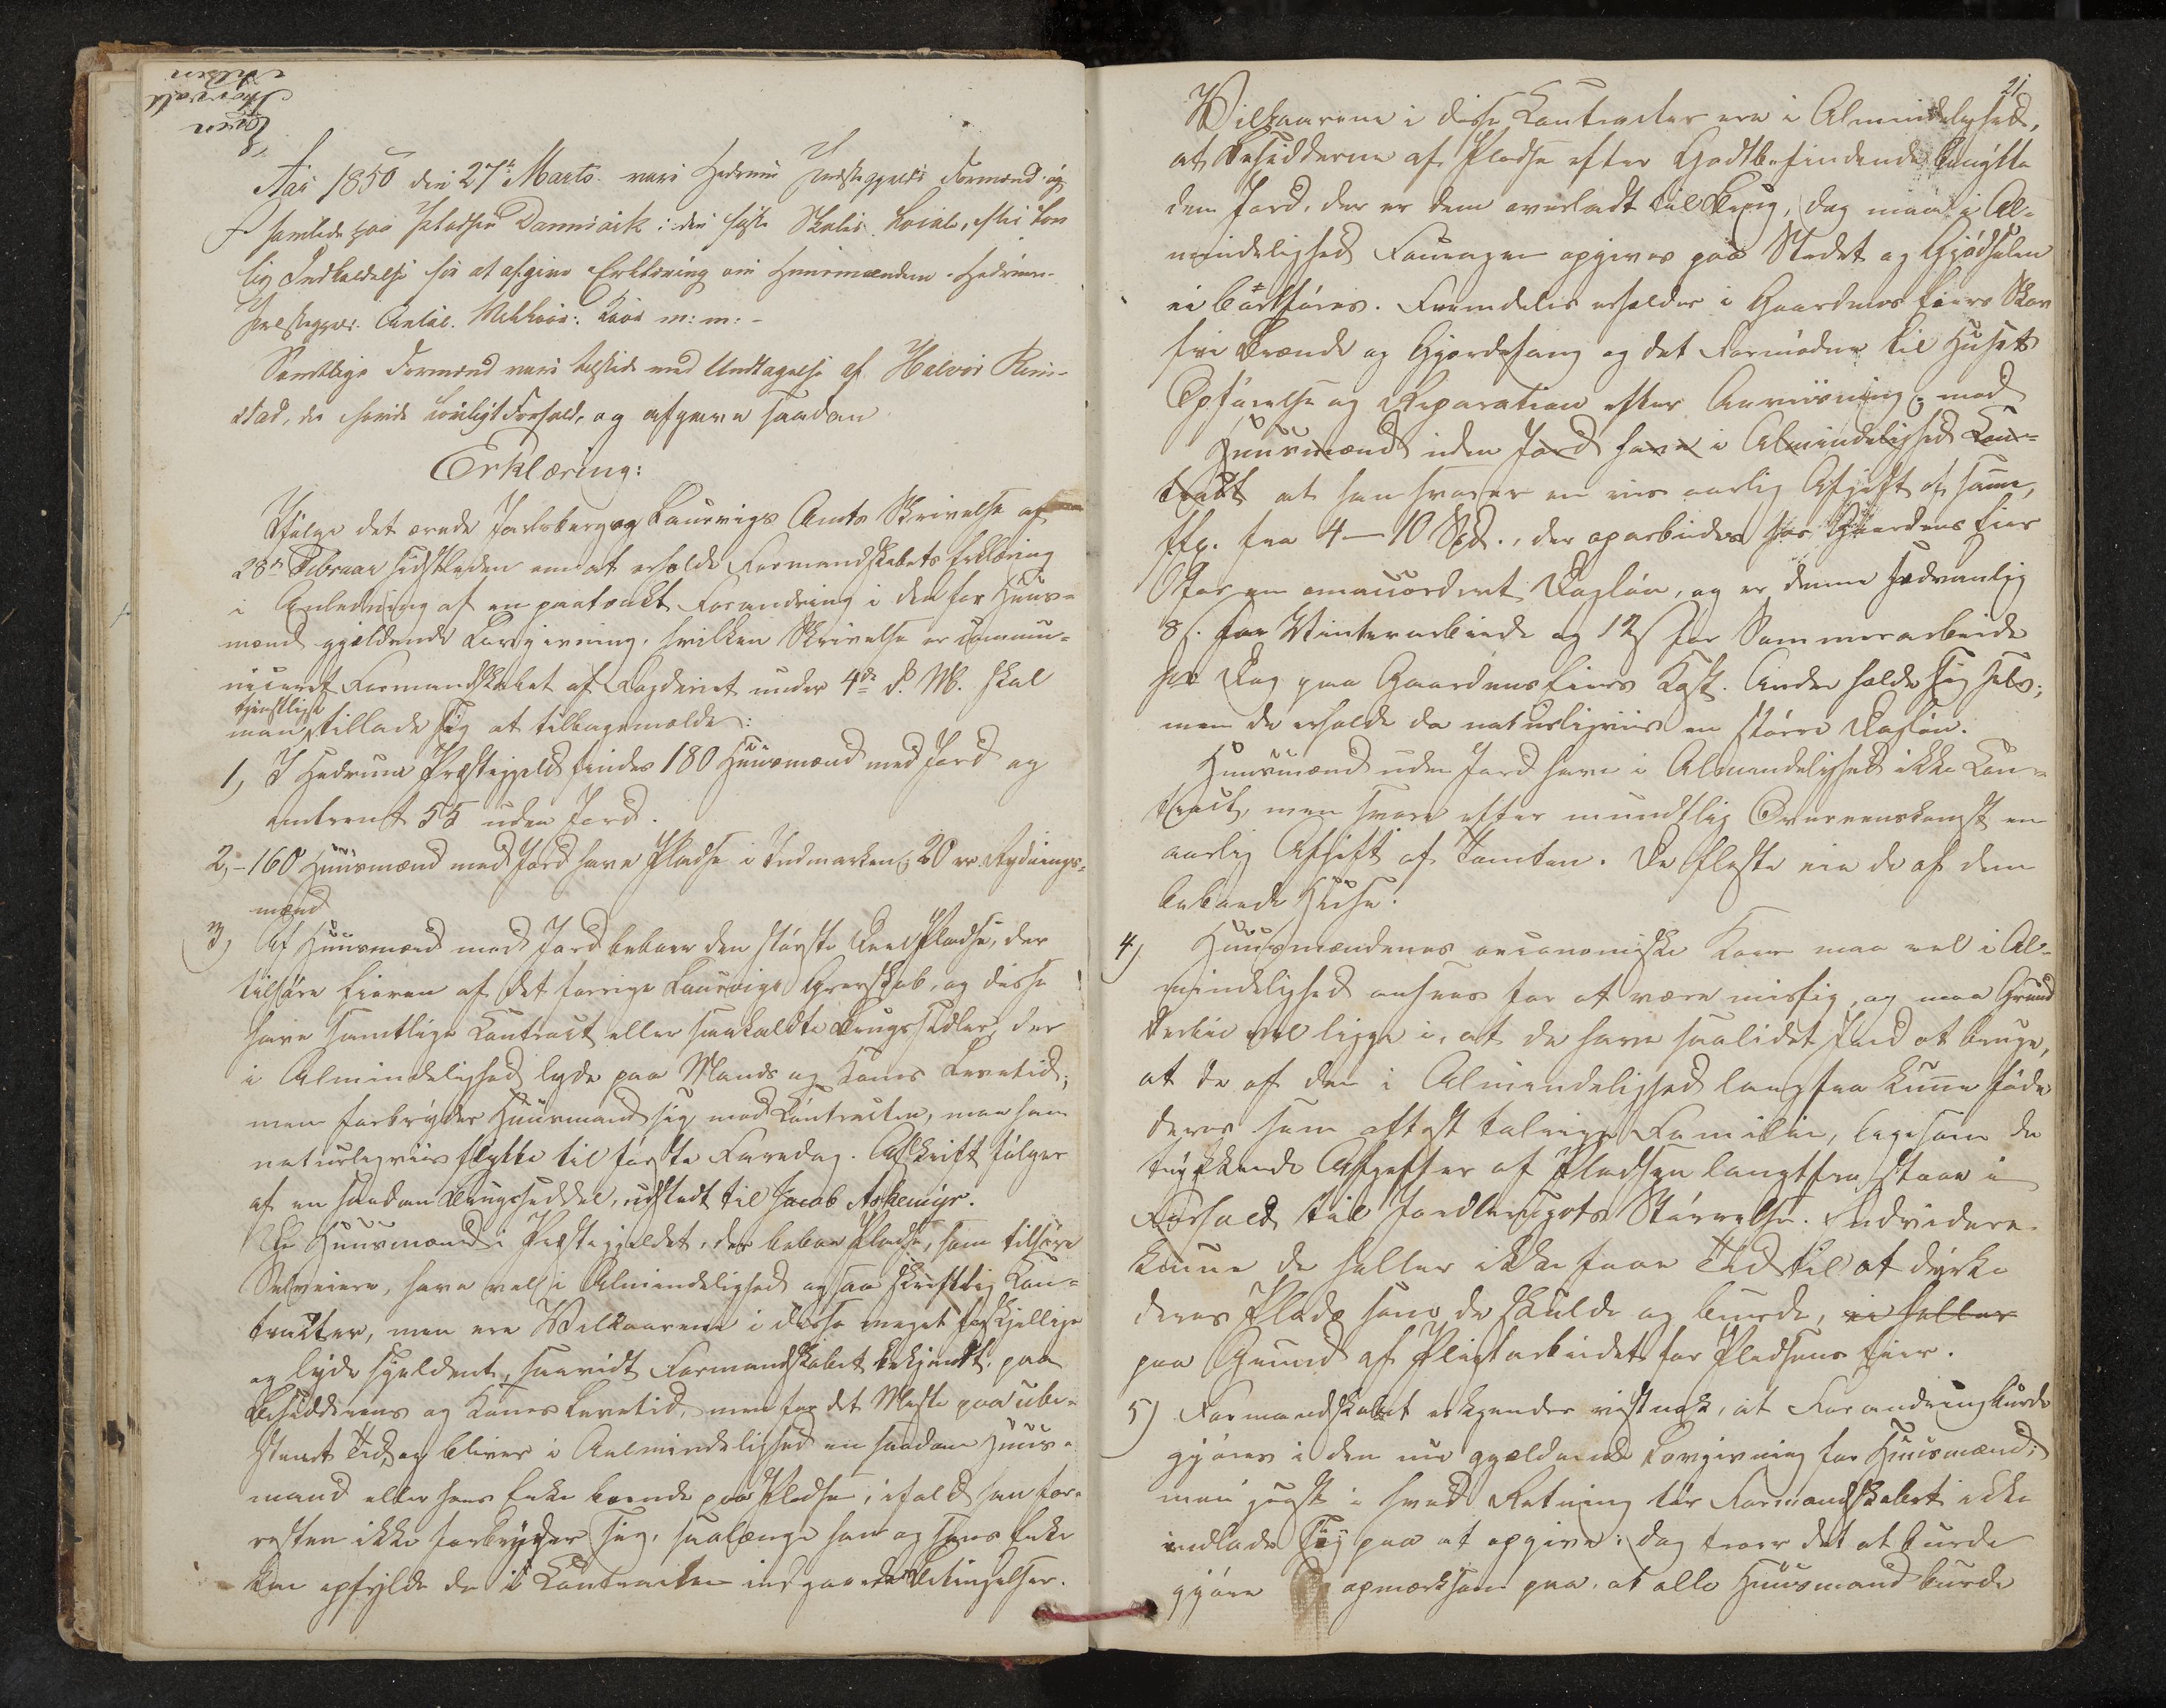 Aar 1850 den 27de Marts var Hedrum Præstegjelds Formænd
samlede paa Pladsen Danmark i den faste Skoles Locale, efter lov
lig Indkaldelse for at afgive Erklæring om Huusmændene i Hedrum
Præstegjeld Antal Vilkaar: Kaar m: m: -
Samtlige Formænd vare tilstede med Undtagelse af Halvor Rim-
stad, der havde lovligt Forfald, og afgave saadan
Erklæring:
Ifølge det ærede Jarlsberg og Laurvigs Amts Skrivelse af
28de Februar sidstleden om at erholde Formandskabets Erklæring
i Anledning af en paatænkt Forandring i den for Huus-
mænd gjældende Lovgivning, hvilken Skrivelse er commu-
niceret Formandskabet af Fogderiet under 4de d. M. skal
tjenstligst
man tillade sig at tilbagemelde:
1, I Hedrum Præstegjeld findes 180 Huusmænd med Jord og
omtrent 55 uden Jord.
2, - 160 Huusmænd med Jord have Pladse i Indmarken, 20 ere Rydnings-
mænd
3, Af Huusmænd med Jord beboer den største Deel Pladse, der
tilhøre Eieren af det forrige Laurvigs Grevskab, og disse
have samtlige Contract eller saakaldte Brugssedler, der
i Almindelighed lyde paa Mands og Kones Levetid;
men forbryder Huusmand sig mod Contracten, maa han
naturligviis flytte til første Faredag. Afskrift følger
af en saadan Brugsseddel, udstedt til Jacob Askemyr.
De Huusmænd i Præstegjeldet, der beboe Pladse, som tilhøre
Selveiere, have vel i Almindelighed ogsaa skriftlig Con-
tracter, men ere Vilkaarene i disse meget forskjellige
og lyde sjeldent, saavidt Formandskabet bekjendt, paa
Besidderens og Kones Levetid, men for det Meste paa ube-
stemt Tid, og bliver i Aalmindelighed en saadan Huus-
mand eller hans Enke boende paa Pladsen, ifald han for-
resten ikke forbryder sig, saalænge han og hans Enke
kan opfylde de i Contracten indgaaede Betingelser.
21
Vilkaarene i disse Contracter ere i Almindelighed,
at Besidderne af Pladse efter Godtbefindende benytte
den Jord, der er dem overladt til Brug, dog maa i Al-
mindelighed Fouragen opgives paa Stedet og Gjødselen
ei bortføres. Fremdeles erholder i Gaardens Eiers Skov
frie Brænde og Gjerdefang og det Fornødne til Husets
Opførelse og Reparation efter Anviisning; mod
Huusmænd uden Jord have i Almindelighed Con-
tract at han svarer en vis aarlig Afgift af samme,
f.Ex. fra 4 - 10 Spd., der oparbeides hos Gaardens Eier
for en omaccorderet Dagløn, og er denne sædvanlig
8 s. for Vinterarbeide og 12 s for Sommerarbeide
pr Dag paa Gaardens Eiers Kost. Andre holde sig selv;
men de erholde da naturligviis en større Dagløn.
Huusmænd uden Jord have i Almindelighed ikke Con-
tract, men svare efter mundtlig Overeenskomst en
aarlig Afgift af Tomten. De fleste eie de af dem
beboede Huse.
4) Huusmændenes oeconomiske Kaar maa vel i Al-
mindelighed ansees for at være mislig, og maa Grund
dertil vel ligge i, at de have saalidet Jord at bruge,
at de af den i Almindelighed langtfra kunne føde
deres som oftest talrige Familie, ligesom de
trykkende Afgifter af Pladsen langtfra staae i
Forhold til Jordbrugets Størrelse. Endvidere
kunne de heller ikke faae Tid til at dyrke
deres Plads som de skulde og burde, ei heller
paa Grund af Pligtarbeidet for Pladsens Eier.
5) Formandskabet erkjender vistnok, at Forandring burde
gjøres i den nu gjældende Lovgivning for Huusmænd;
men just i hvad Retning tør Formandskabet ikke
indlade sig paa at opgive; dog troer det at burde
gjøre opmærksom paa, at alle Huusmænd burde